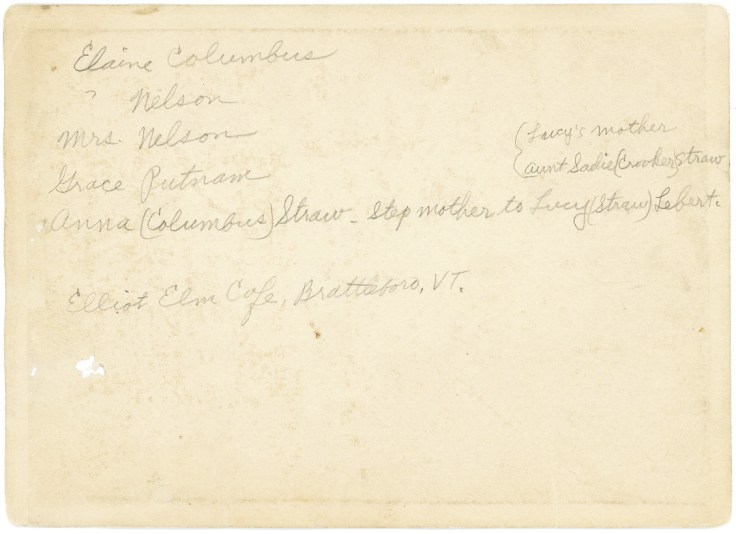 Elaine Columbus
? Nelson
Mrs. Nelson
(Lucy's mother
Grace Putnam
(aunt Sadie (Crooker) Straw
Anna (Columbus) Straw - Step mother to Lucy (Straw) Lebert.
Elliot Elm Cafe, Brattleboro, VT.